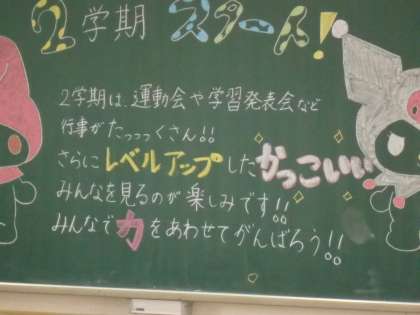 2学期 スタート!
2学期は、運動会や学習発表会など
行事がたっっっくさん!!
さらにレベルアップしたかっこいいい
みんなを見るのが楽しみです!!
みんなで力をあわせてがんばろう!!